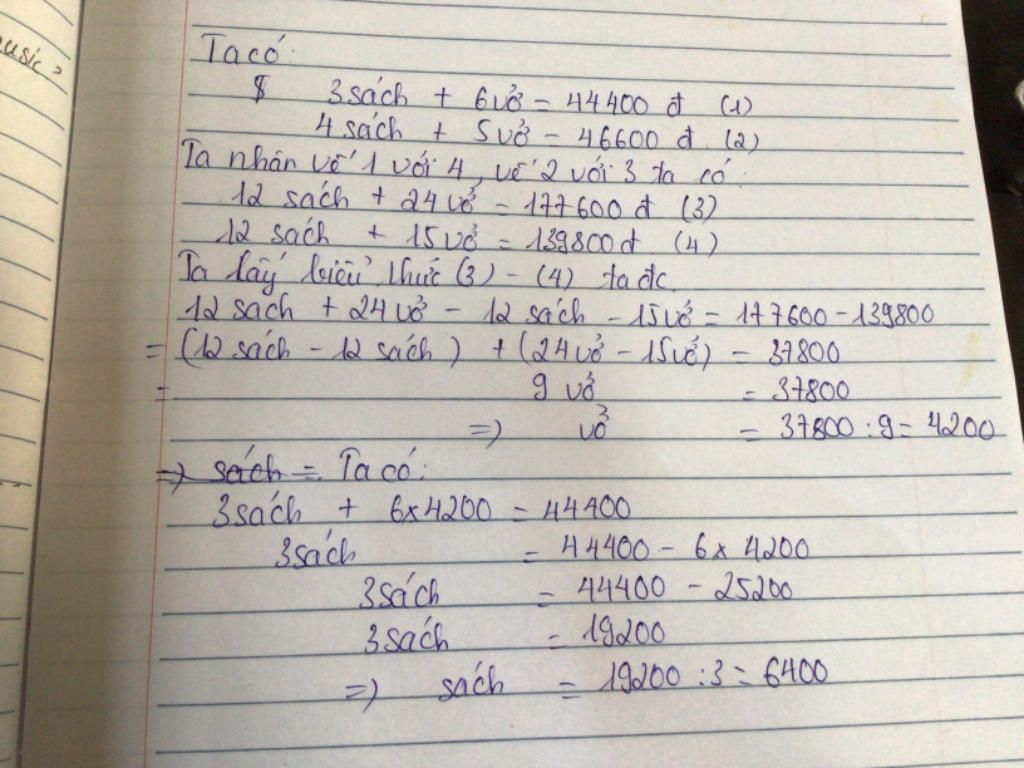 music >
Ta có:
3 sách + 6 vở = 44400 đ (1)
4 sách + 5 vở = 46600 đ (2)
Ta nhân vế 1 với 4, vế 2 với 3 ta có:
12 sách + 24 vở = 177600 đ (3)
12 sách + 15 vở = 139800 đ (4)
Ta lấy biểu thức (3) - (4) ta đc
12 sách + 24 vở - 12 sách - 15 vở = 177600 - 139800
= (12 sách - 12 sách) + (24 vở - 15 vở) = 37800
= 9 vở = 37800
=> vở = 37800 : 9 = 4200
=> sách = Ta có:
3 sách + 6 x 4200 = 44400
3 sách = 44400 - 6 x 4200
3 sách = 44400 - 25200
3 sách = 19200
=> sách = 19200 : 3 = 6400